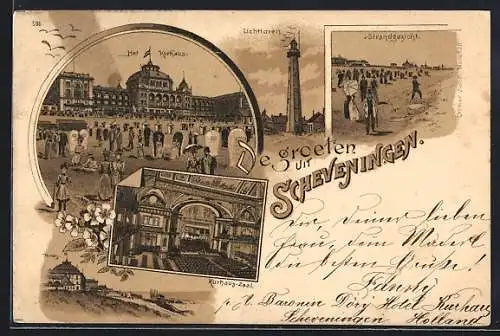 536
Het Kurhaus.
Lichttoren.
Strandgezicht.
De groeten
uit
SCHEVENINGEN.
Kurhaus-Zaal.
Dir, Deiner lieben
Frau, dem Mäderl
den besten Gruß!
Fanny
Baronin Dóry Hotel Kurhaus
Scheveningen Holland